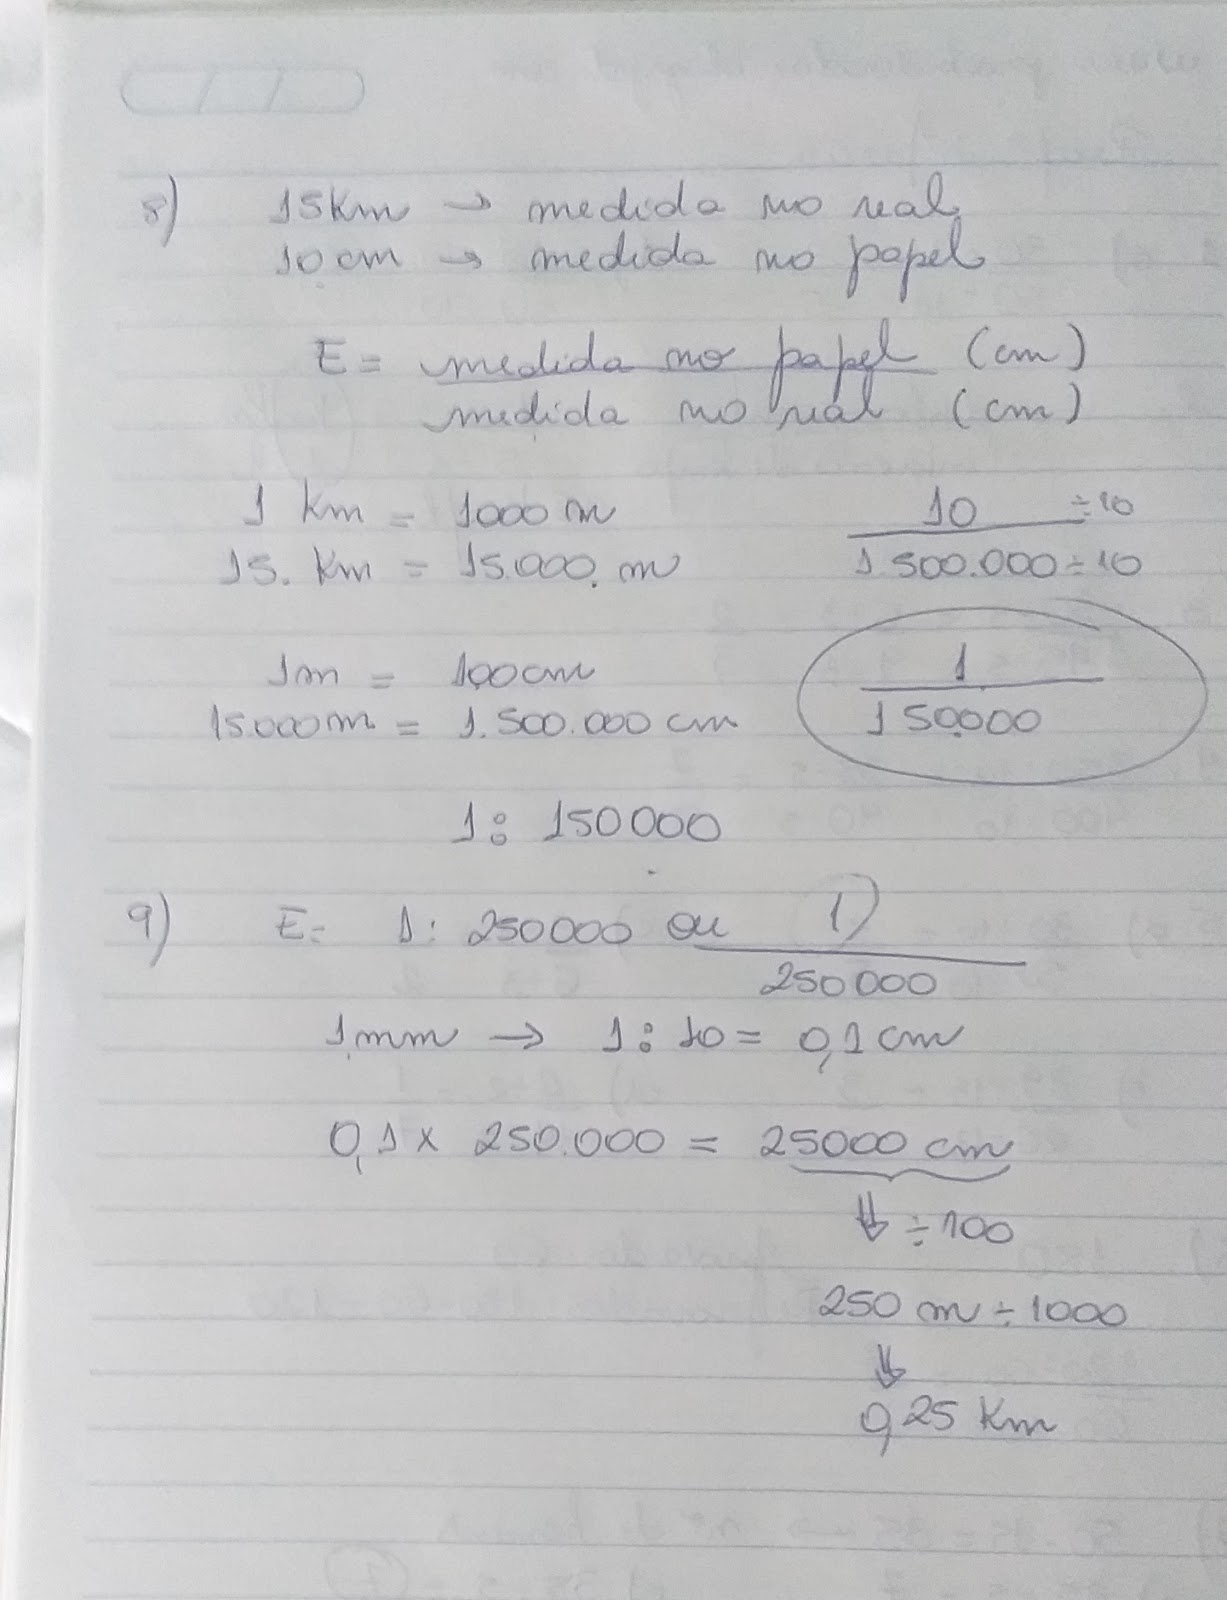 8) 15 Km → medida no real
10 cm → medida no papel
E = medida no papel (cm)
medida no real (cm)
1 Km = 1000 m
15. Km = 15.000 m
10 ÷10
1.500.000 ÷ 10
1m = 100 cm
15.000 m = 1.500.000 cm
1
150.000
1 : 150 000
9) E = 1 : 250 000 ou 1
250 000
1 mm → 1 : 10 = 0,1 cm
0,1 x 250.000 = 25000 cm
÷ 100
250 m ÷ 1000
0,25 Km